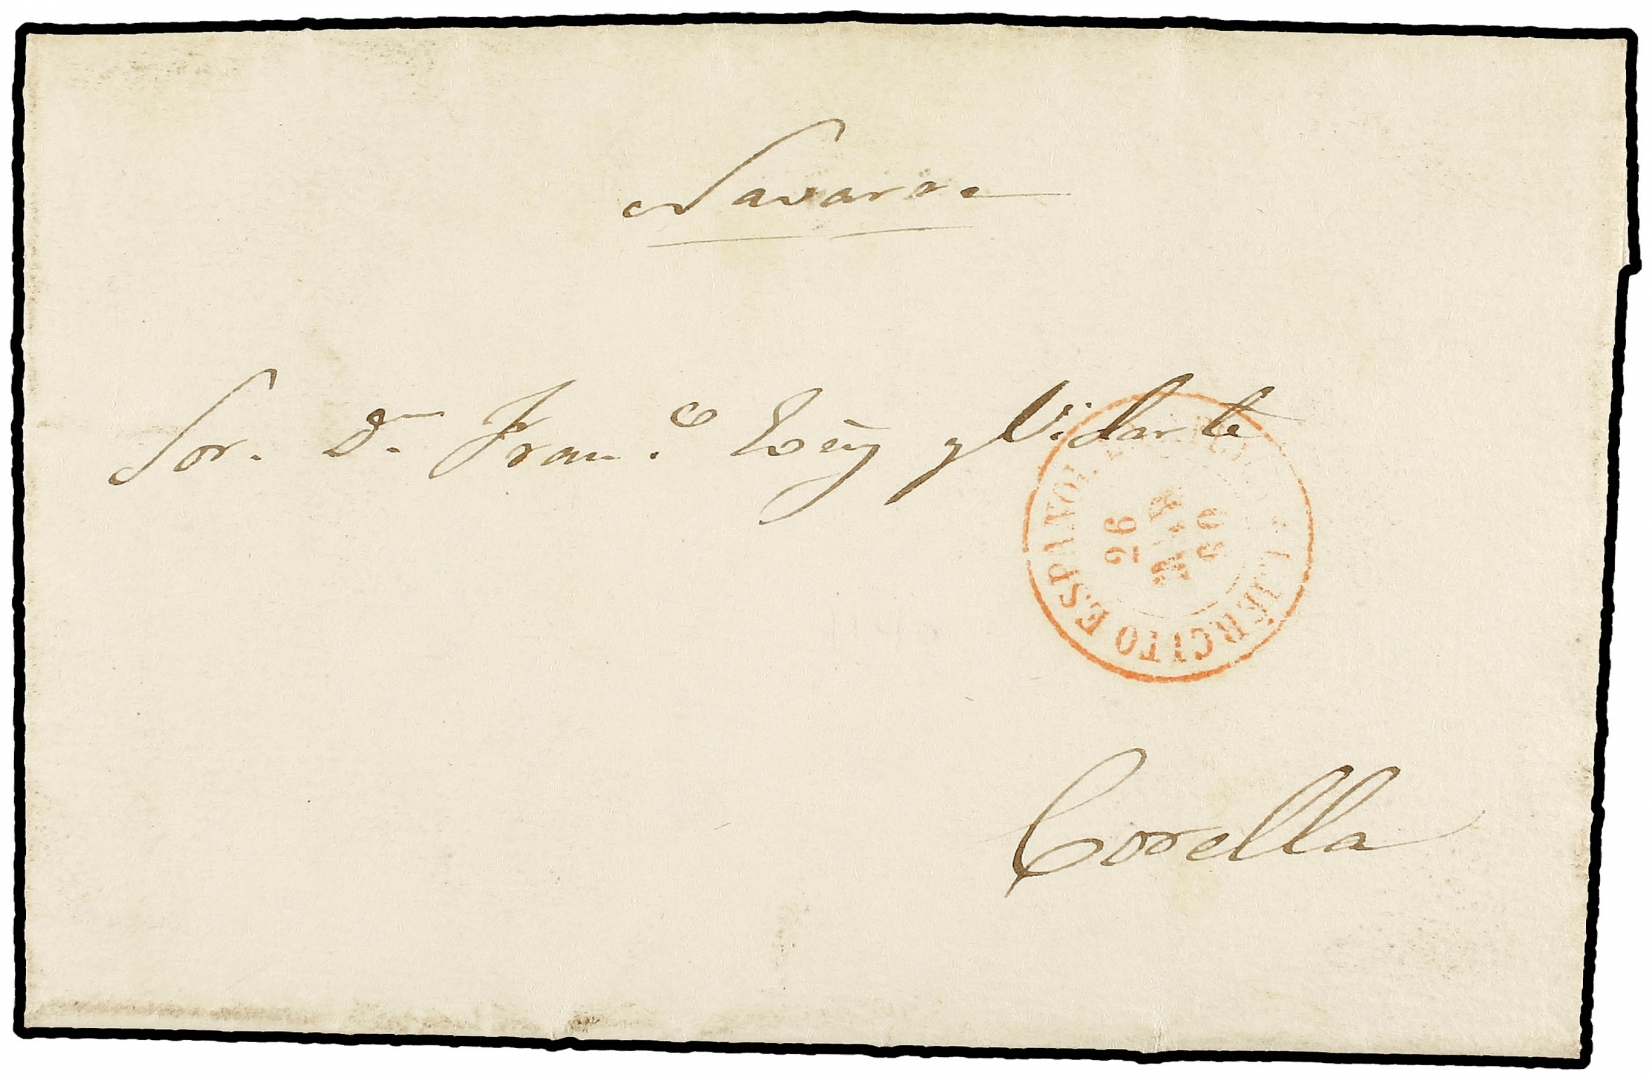 Navarra
Sor. Dn. Franco. y Vidarte
EJÉRCITO ESPAÑOL
26
MAR
60
Corella